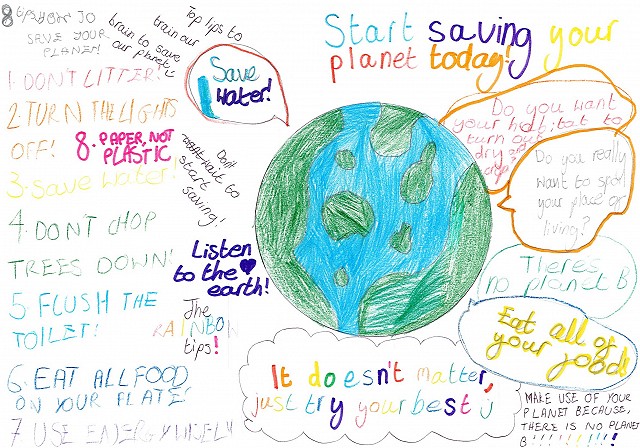 8 tips how to
save your
planet!
Top tips to
train our
brain to save
our planet
Start saving your
planet today!
Save
water!
1 DON'T LITTER!
2. TURN THE LIGHTS
OFF!
8. PAPER, NOT
PLASTIC
3. Save water!
4. DON'T CHOP
TREES DOWN!
5 FLUSH THE
TOILET!
6. EAT ALL FOOD
ON YOUR PLATE!
7 USE ENERGY WISELY
Don't
wait to
start
saving!
Listen
to the
earth!
The
RAINBOW
tips!
Do you want
your
to
turn out
dry
Do you really
want to spoil
your place of
living?
There's
no planet B
Eat all of
your food
It doesn't matter,
just try your best
MAKE USE OF YOUR
PLANET BECAUSE,
THERE IS NO PLANET
B!!!!!!!!!